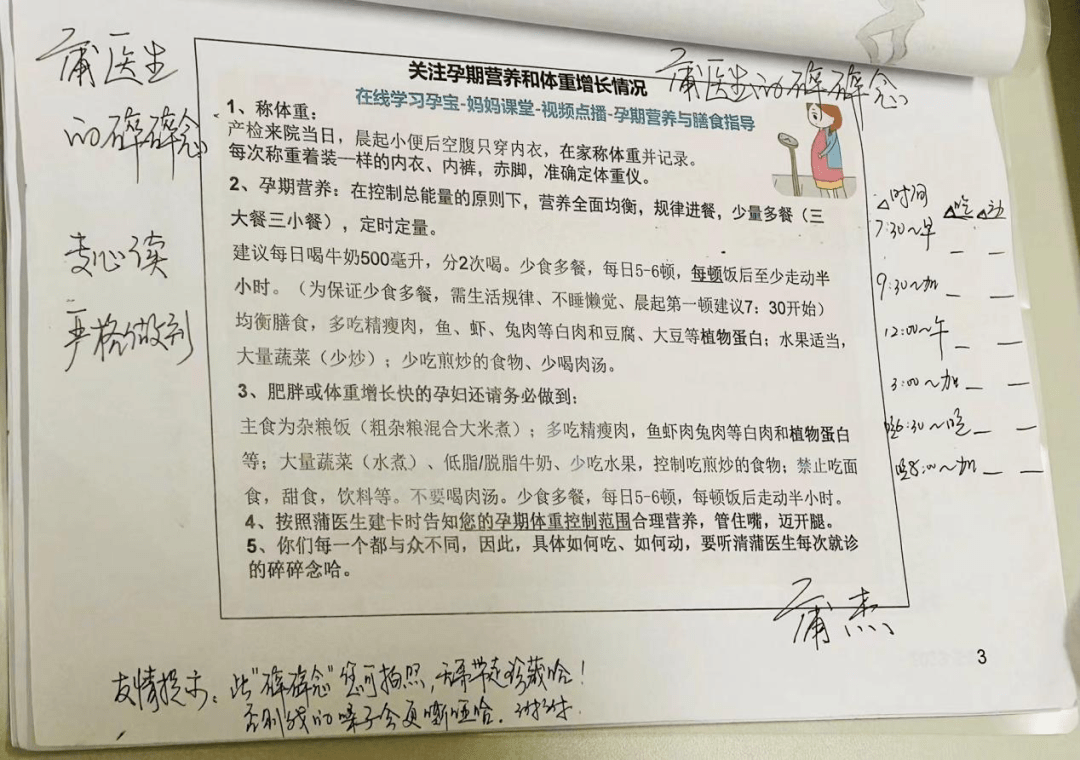 蒲医生
的碎碎念
专心读
严格做到
蒲医生的碎碎念
关注孕期营养和体重增长情况
在线学习孕宝-妈妈课堂-视频点播-孕期营养与膳食指导
1、称体重：
产检来院当日，晨起小便后空腹只穿内衣，在家称体重并记录。
每次称重着装一样的内衣、内裤，赤脚，准确定体重仪。
2、孕期营养：在控制总能量的原则下，营养全面均衡，规律进餐，少量多餐（三
大餐三小餐），定时定量。
建议每日喝牛奶500毫升，分2次喝。少食多餐，每日5-6顿，每顿饭后至少走动半
小时。（为保证少食多餐，需生活规律、不睡懒觉、晨起第一顿建议7：30开始）
均衡膳食，多吃精瘦肉，鱼、虾、兔肉等白肉和豆腐、大豆等植物蛋白；水果适当，
大量蔬菜（少炒）；少吃煎炒的食物、少喝肉汤。
3、肥胖或体重增长快的孕妇还请务必做到：
主食为杂粮饭（粗杂粮混合大米煮）；多吃精瘦肉，鱼虾肉兔肉等白肉和植物蛋白
等；大量蔬菜（水煮）、低脂/脱脂牛奶、少吃水果，控制吃煎炒的食物；禁止吃面
食，甜食，饮料等。不要喝肉汤。少食多餐，每日5-6顿，每顿饭后走动半小时。
4、按照蒲医生建卡时告知您的孕期体重控制范围合理营养，管住嘴，迈开腿。
5、你们每一个都与众不同，因此，具体如何吃、如何动，要听清蒲医生每次就诊
的碎碎念哈。
△时间 △吃 △动
7:30~早 — —
9:30~加 — —
12:00~午 — —
3:00~加 — —
6:30~晚 — —
晚8:00~加 — —
蒲杰
友情提示：此“碎碎念”您可拍照，无需带走珍藏哈！
否则我的嗓子会更嘶哑哈．谢谢
3